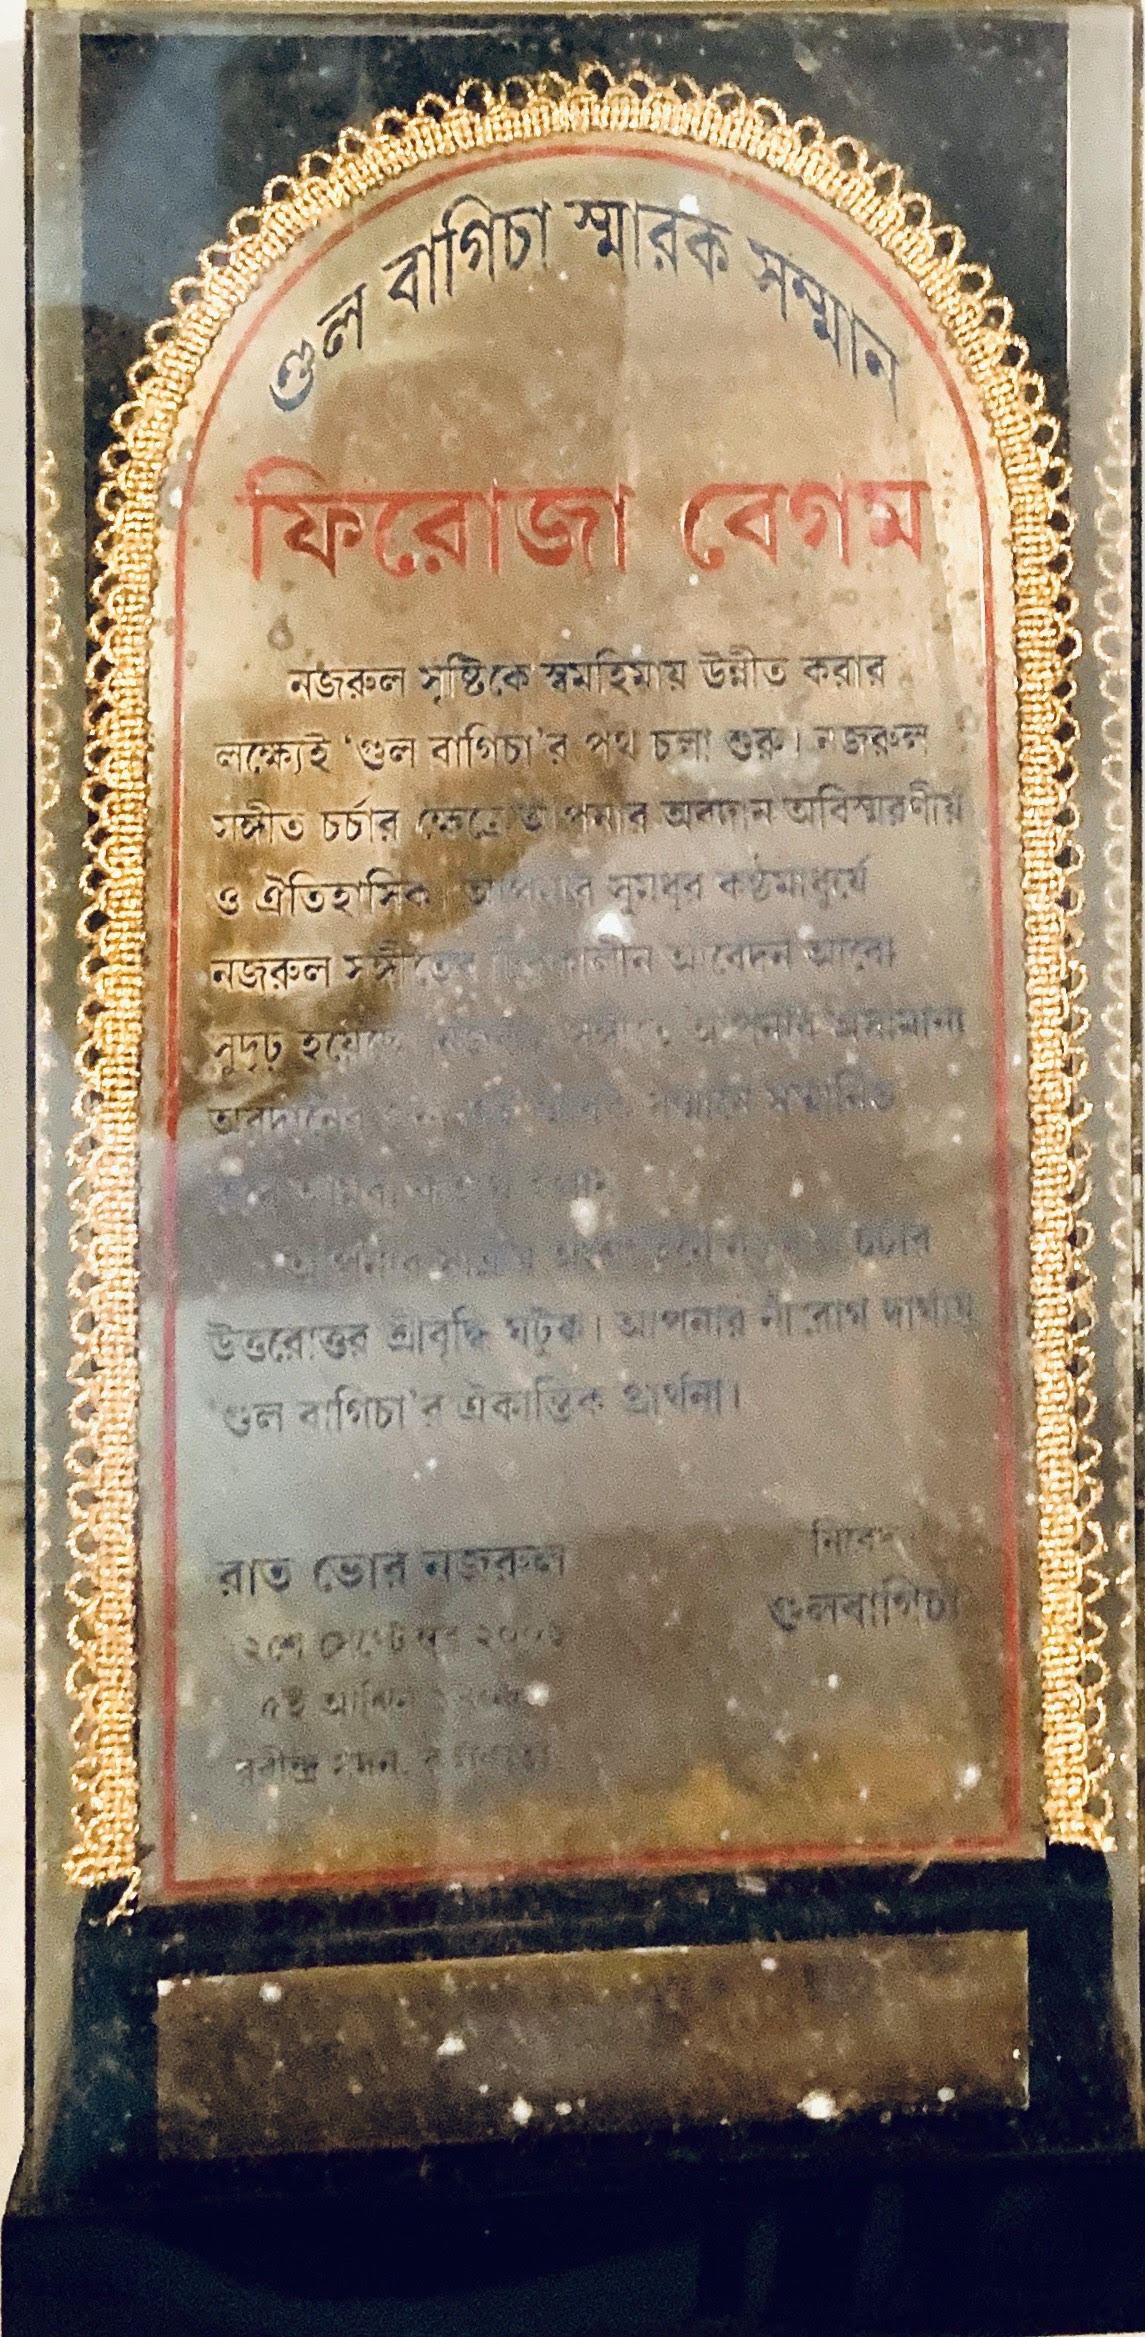 গুল বাগিচা স্মারক সম্মান
ফিরোজা বেগম
নজরুল সৃষ্টিকে স্বমহিমায় উন্নীত করার
লক্ষ্যেই 'গুল বাগিচা'র পথ চলা শুরু। নজরুল
সঙ্গীত চর্চার ক্ষেত্রে আপনার অবদান অবিস্মরণীয়
ও ঐতিহাসিক। আপনার সুমধুর কণ্ঠমাধুর্যে
নজরুল সঙ্গীতের চিরকালীন আবেদন আরো
সুদৃঢ় হয়েছে। সঙ্গীতে আপনার অসামান্য
অবদানের সম্মানে সম্মানিত
আপনার চর্চার
উত্তরোত্তর শ্রীবৃদ্ধি ঘটুক। আপনার নীরোগ দীর্ঘায়ু
'গুল বাগিচা'র ঐকান্তিক প্রার্থনা।
রাত ভোর নজরুল
সেপ্টেম্বর
৫ই আশ্বিন
রবীন্দ্র সদন,
গুলবাগিচা